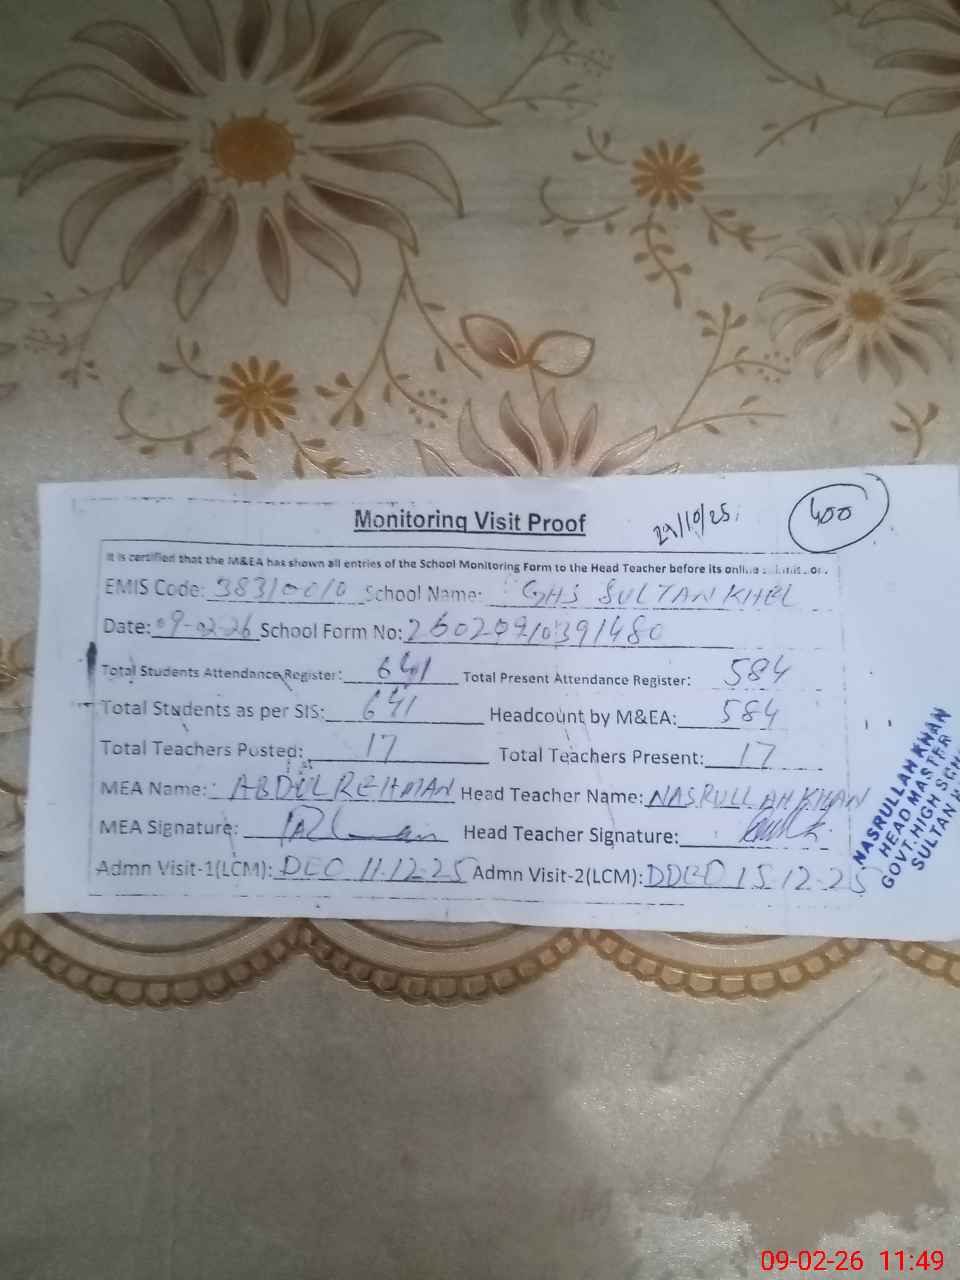 Monitoring Visit Proof
29/10/25
400
It is certified that the M&EA has shown all entries of the School Monitoring Form to the Head Teacher before its online
EMIS Code: 38310010 School Name: GHS SULTAN KHEL
Date: 09-02-26 School Form No: 26020910391480
Total Students Attendance Register: 641 Total Present Attendance Register: 584
Total Students as per SIS: 641 Headcount by M&EA: 584
Total Teachers Posted: 17 Total Teachers Present: 17
MEA Name: ABDUL REHMAN Head Teacher Name: NASRULLAH KHAN
MEA Signature: Head Teacher Signature:
Admn Visit-1(LCM): DEO 11.12.25 Admn Visit-2(LCM): DDEO 15.12.25
NASRULLAH KHAN
HEAD MASTER
GOVT. HIGH
SULTAN
09-02-26 11:49